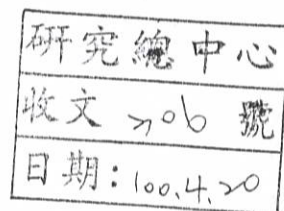 研究總中心
收文 706 號
日期:100.4.20